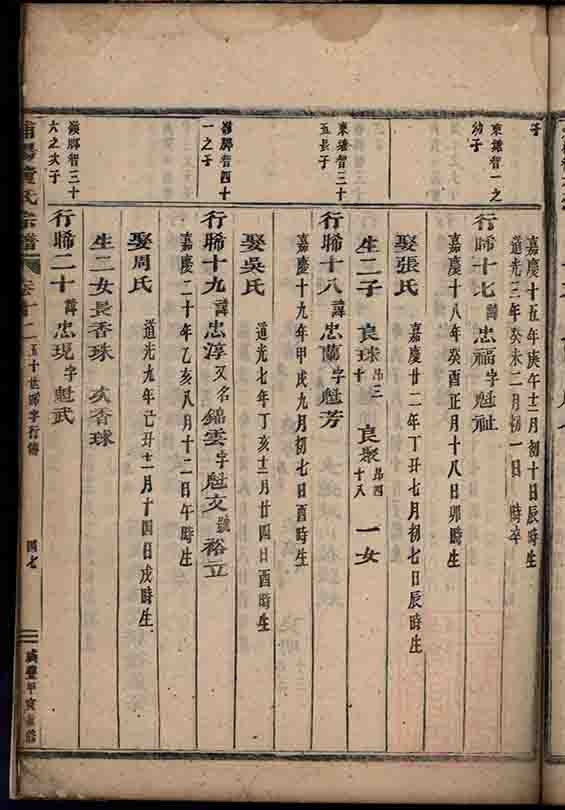 子
嘉慶十五年庚午十二月初十日辰時生
道光三年癸未二月初一日 時卒
東雝智一之
幼子
行晞十七諱忠福字魁祉
嘉慶十八年癸酉正月十八日卯時生
娶張氏 嘉慶廿二年丁丑七月初七日辰時生
生二子 良球昂三十 良聚昂四十八 一女
東雝智三十
五長子
行晞十八諱忠蘭字魁芳
嘉慶十九年甲戌九月初七日酉時生
娶吳氏 道光七年丁亥十二月廿四日酉時生
智四十
一之子
行晞十九諱忠淳又名錦雲字魁文號裕立
嘉慶二十年乙亥八月十二日午時生
娶周氏 道光九年己丑十二月十四日戌時生
生二女長香珠 次香球
智三十
六之次子
行晞二十諱忠現字魁武
氏宗譜 卷十二 五十世晞字行傳 四七 咸豐